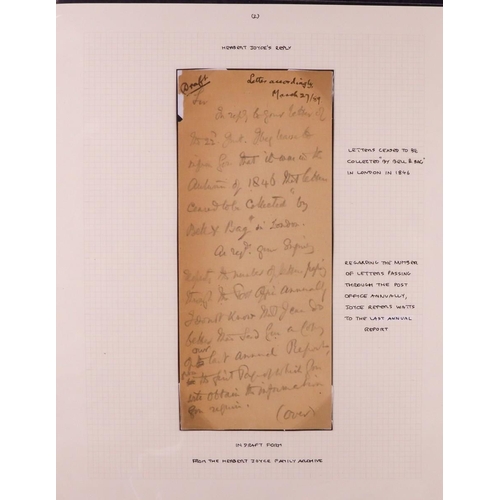 (2)
HERBERT JOYCE'S REPLY
Draft
Letter accordingly
March 27/89
Sir
In reply to your letter of
the 22nd Inst. I beg leave to
inform you that it was in the
Autumn of 1846 that letters
ceased to be collected "by
Bell & Bag" in London.
As regds. your inquiry
the number of letters passing
through the Post Office Annually
I do not know that I can do
better than send you a copy
of our last Annual Report,
the first Page of which you
will obtain the information
you require.
(over)
LETTERS CEASED TO BE
COLLECTED "BY BELL & BAG"
IN LONDON IN 1846
REGARDING THE NUMBER
OF LETTERS PASSING
THROUGH THE POST
OFFICE ANNUALLY,
JOYCE REFERS WATTS
TO THE LAST ANNUAL
REPORT
IN DRAFT FORM
FROM THE HERBERT JOYCE FAMILY ARCHIVE